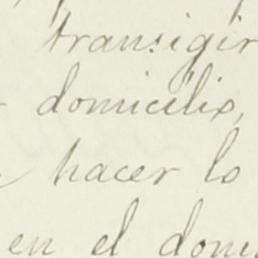 transigir
domicilio,
hacer lo
en el domi